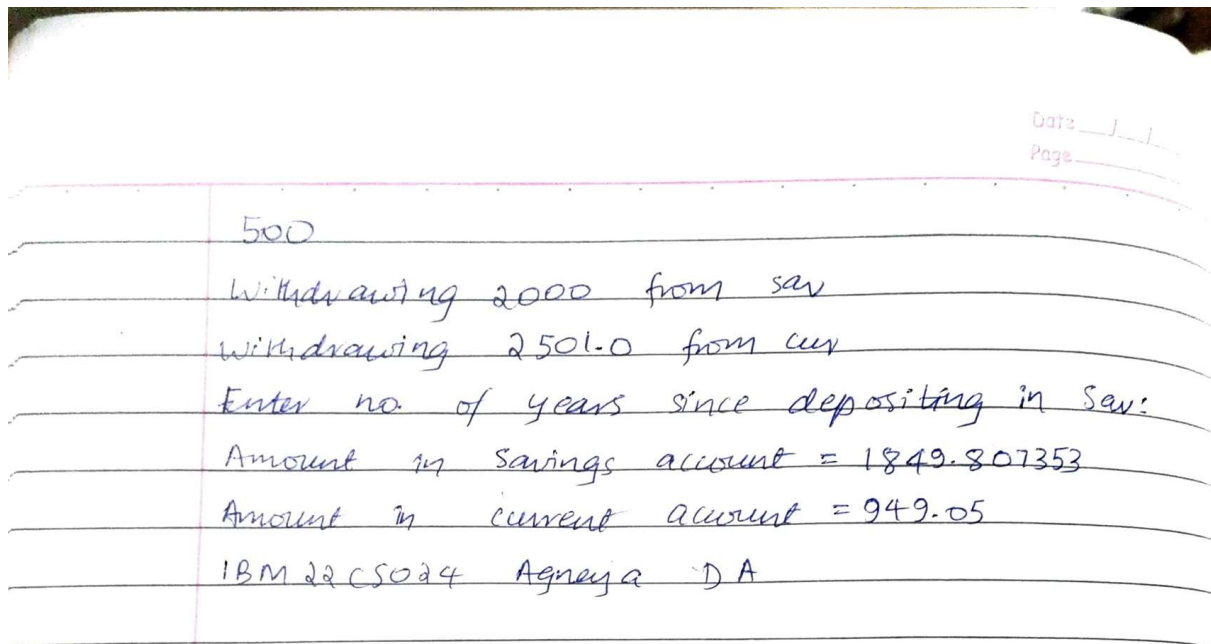 Date
Page
500
Withdrawing 2000 from sav
Withdrawing 2501.0 from cur
Enter no. of years since depositing in Sav:
Amount in Savings account = 1849.807353
Amount in current account = 949.05
1BM22CS024 Agneya D A